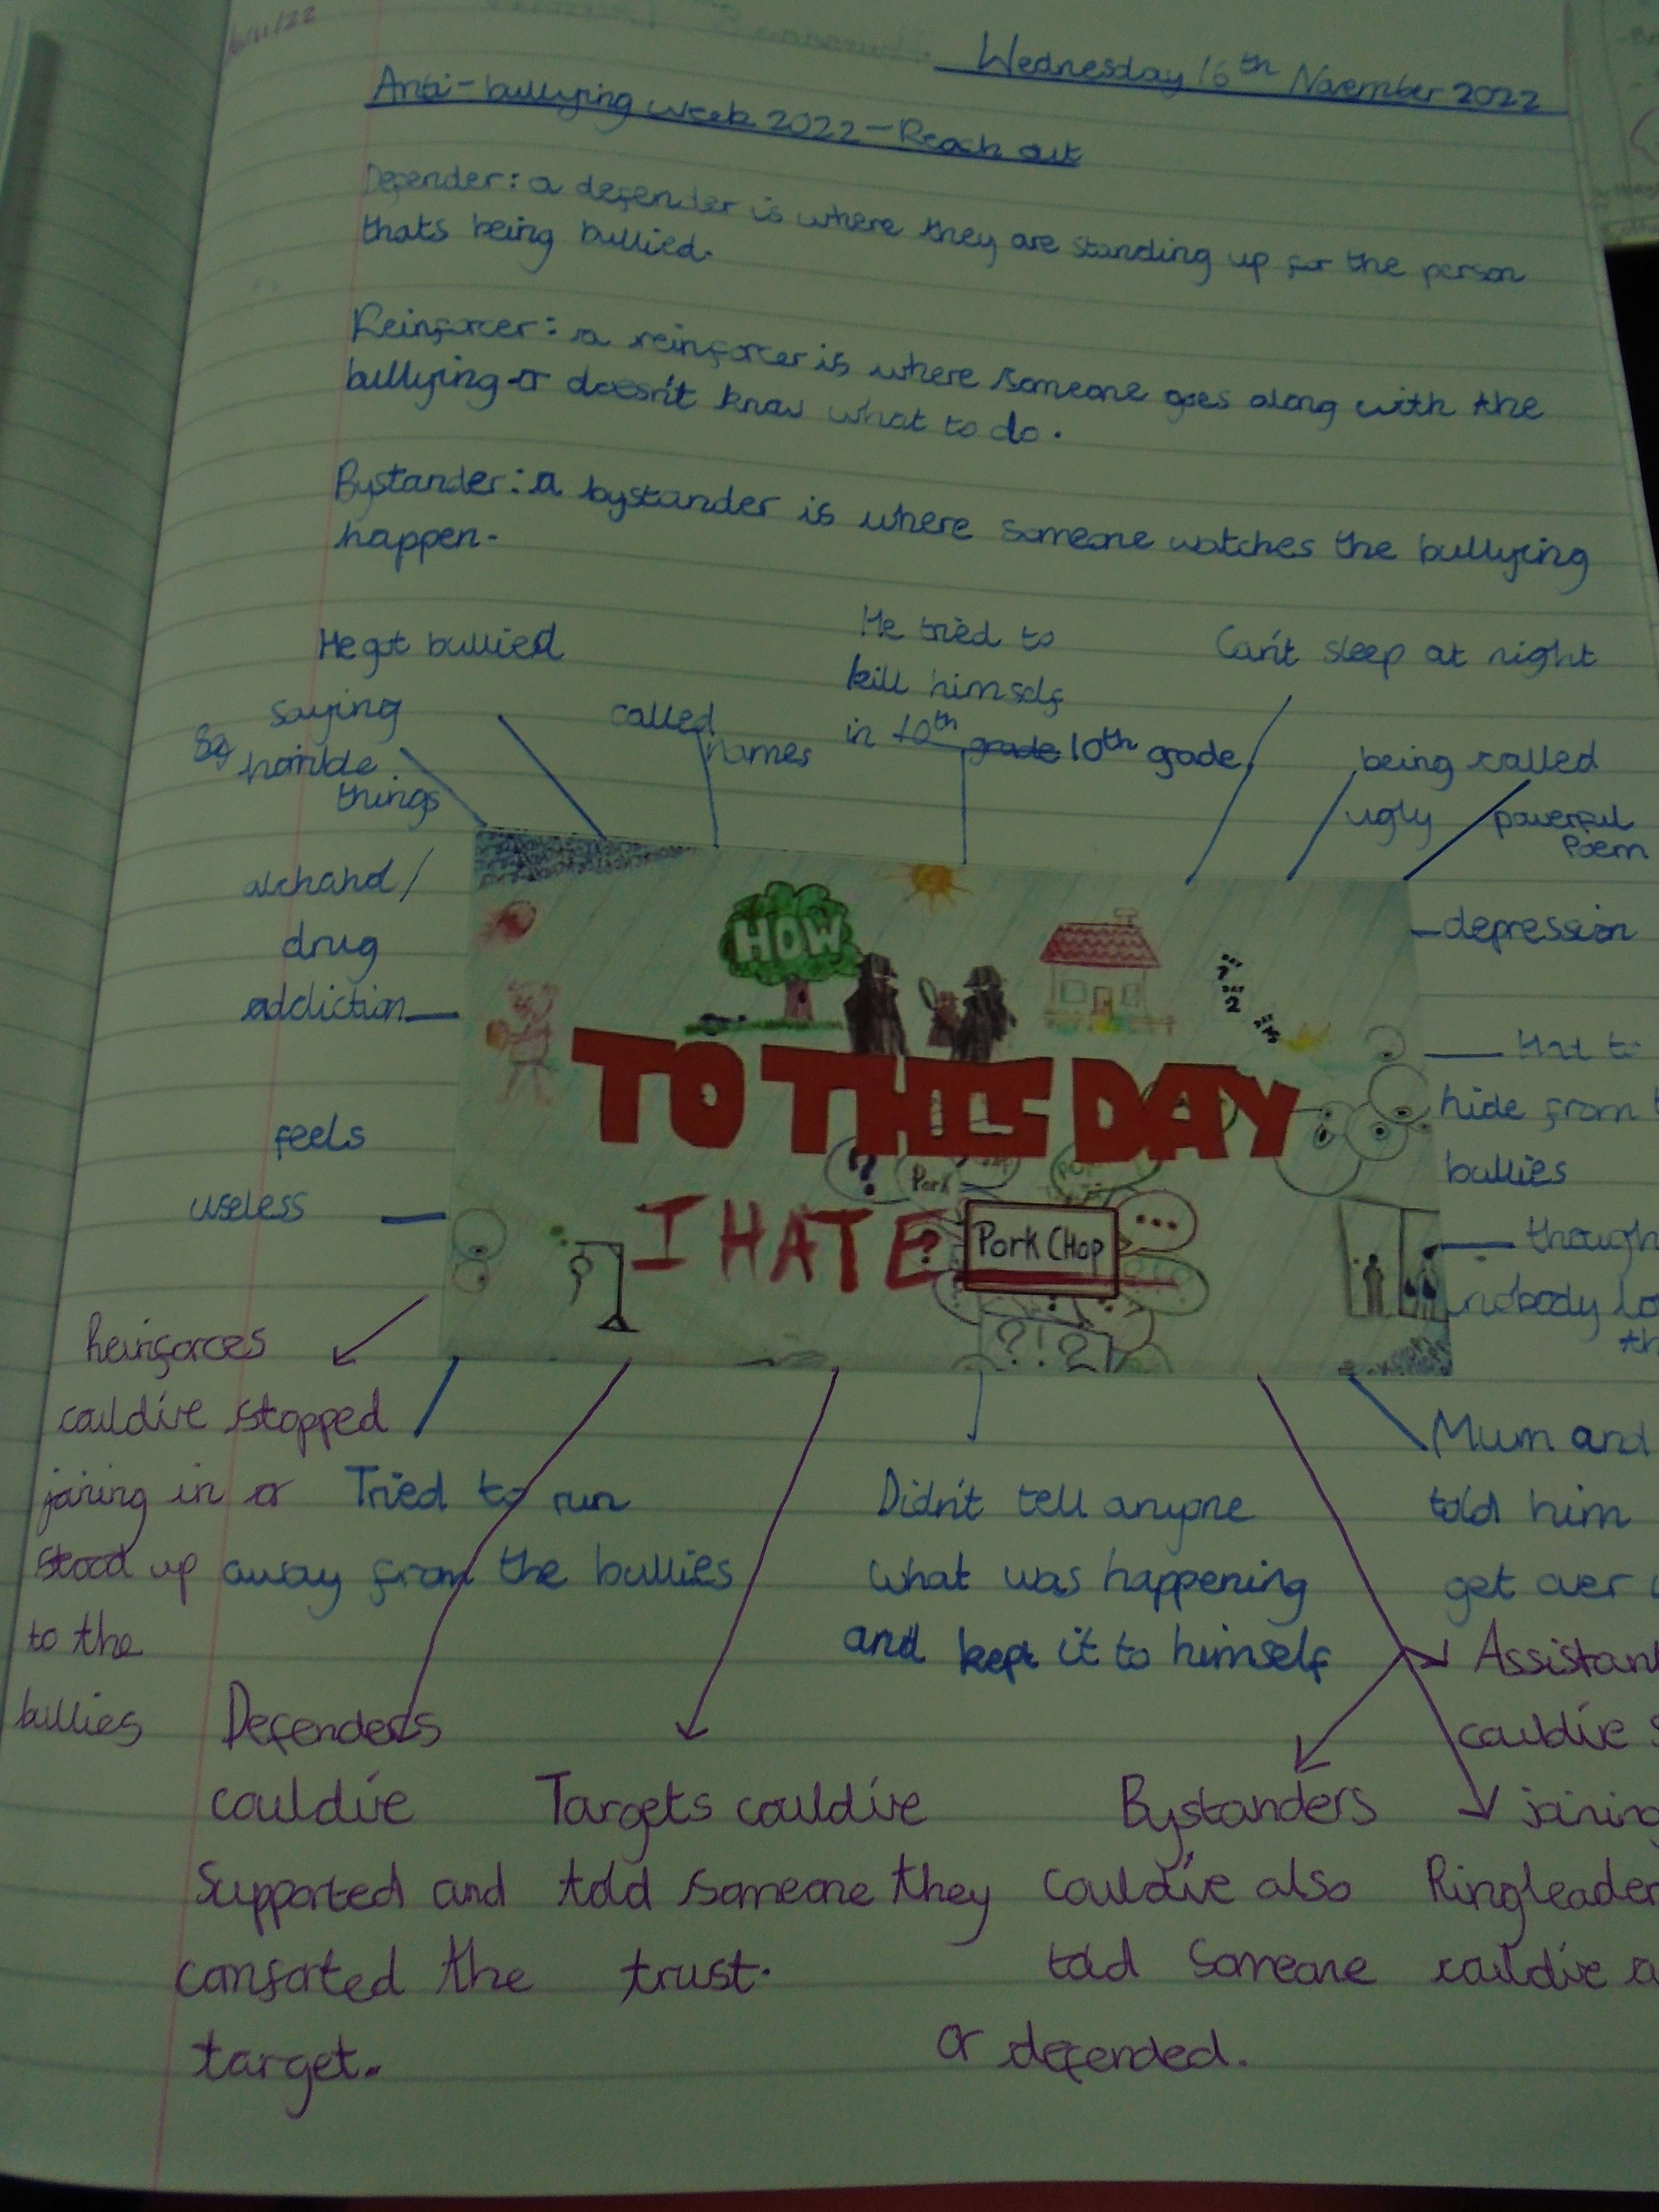 Wednesday 16th November 2022
Anti-bullying week 2022 - Reach out
Defender: a defender is where they are standing up for the person
thats being bullied.
Reinforcer: a reinforcer is where someone goes along with the
bullying or doesn't know what to do.
Bystander: a bystander is where someone watches the bullying
happen.
He got bullied
saying
horrible
things
called
names
He tried to
kill himself
in 10th grade 10th grade
Can't sleep at night
being called
ugly
powerful
Poem
drug
addiction
depression
feels
useless
hide from
bullies
nobody
HOW
DAY
2
TO THIS DAY
I HATE
Pork Chop
Pork
?
...
?!?
Reinforces
could've stopped
joining in or
stood up
to the
bullies
Tried to run
away from the bullies
Didn't tell anyone
what was happening
and kept it to himself
Mum and
told him
get over
Defenders
could've
supported and
comforted the
target.
Targets could've
told someone they
trust.
Bystanders
could've also
told someone
or defended.
could've
joining
could've